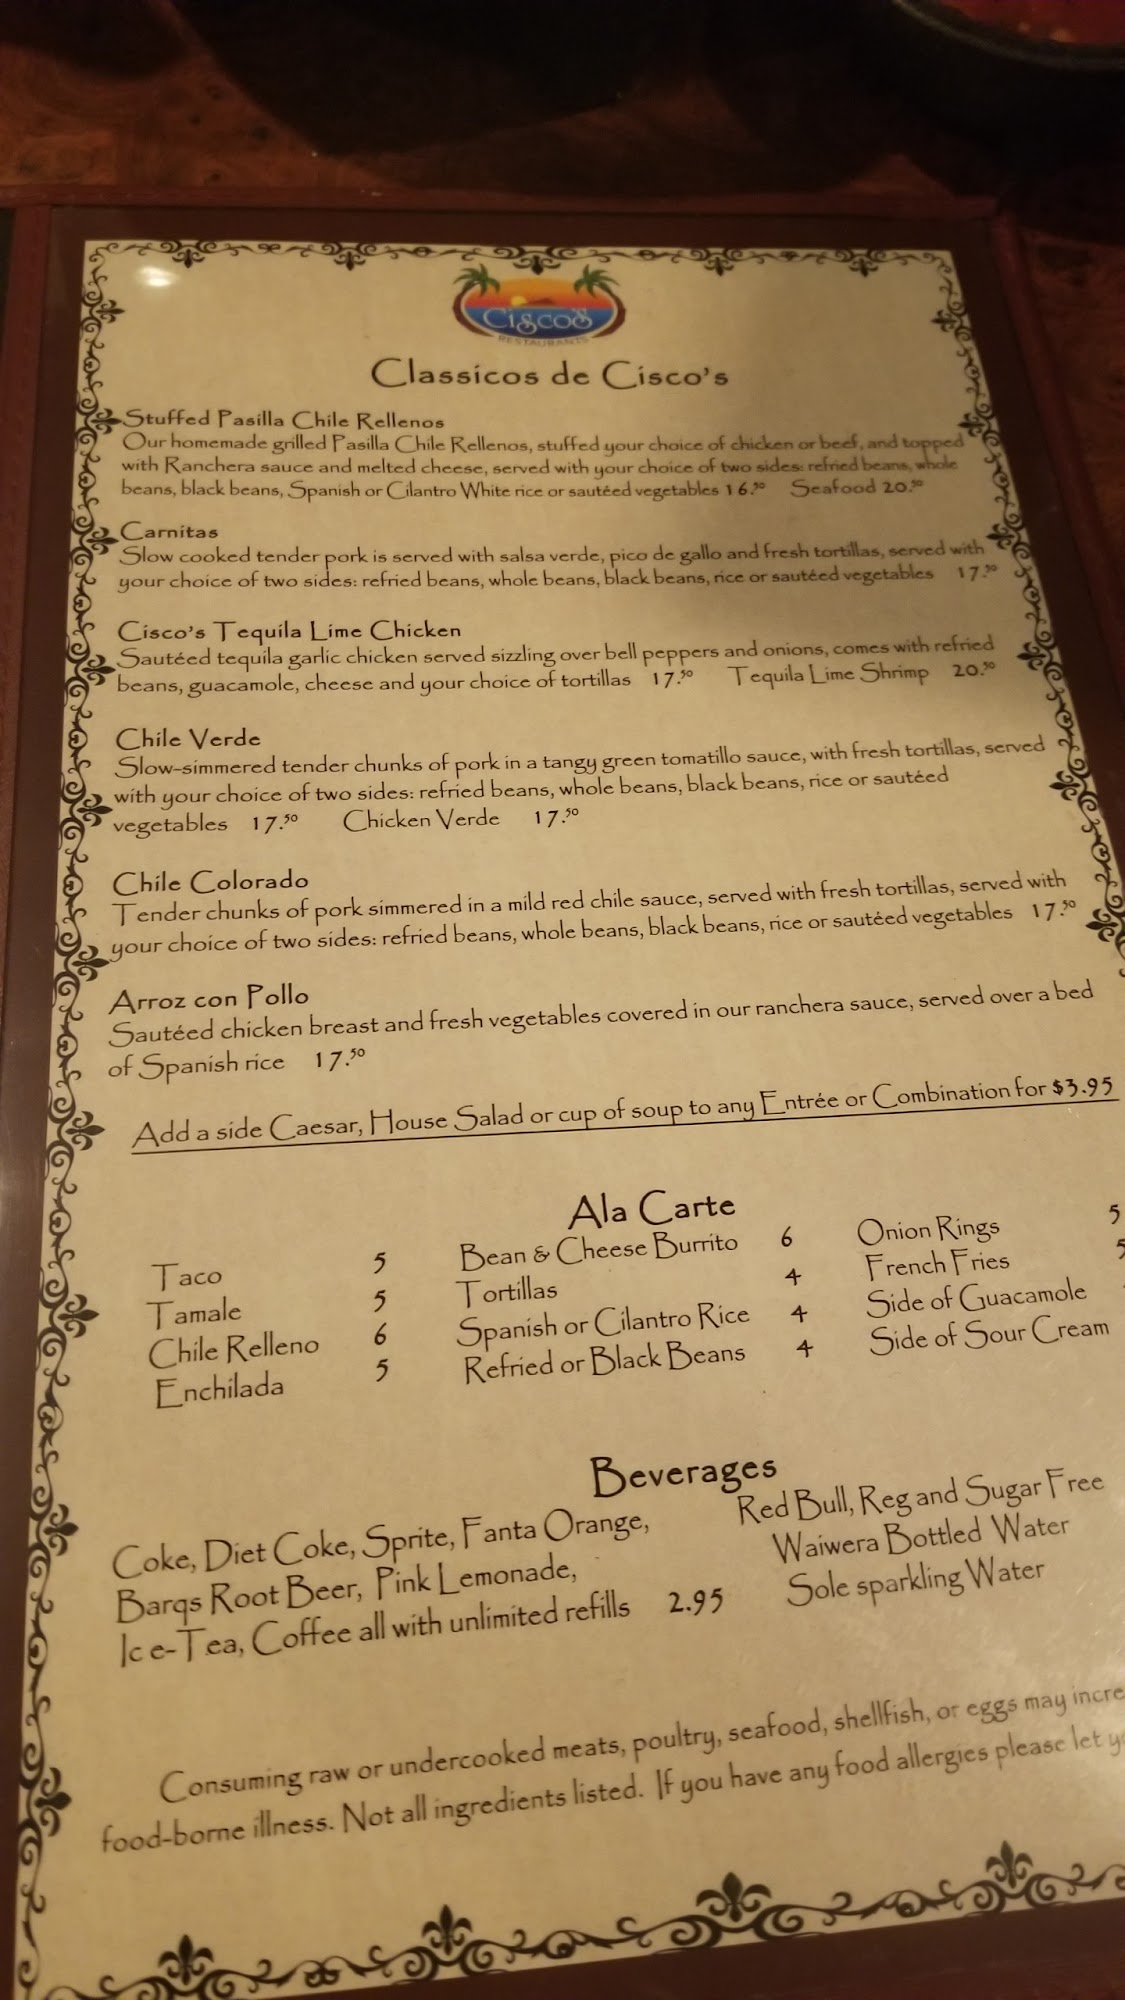 Cisco's
RESTAURANTS
Classicos de Cisco's
Stuffed Pasilla Chile Rellenos
Our homemade grilled Pasilla Chile Rellenos, stuffed your choice of chicken or beef, and topped
with Ranchera sauce and melted cheese, served with your choice of two sides: refried beans, whole
beans, black beans, Spanish or Cilantro White rice or sautéed vegetables 16.50 Seafood 20.50
Carnitas
Slow cooked tender pork is served with salsa verde, pico de gallo and fresh tortillas, served with
your choice of two sides: refried beans, whole beans, black beans, rice or sautéed vegetables 17.50
Cisco's Tequila Lime Chicken
Sautéed tequila garlic chicken served sizzling over bell peppers and onions, comes with refried
beans, guacamole, cheese and your choice of tortillas 17.50 Tequila Lime Shrimp 20.50
Chile Verde
Slow-simmered tender chunks of pork in a tangy green tomatillo sauce, with fresh tortillas, served
with your choice of two sides: refried beans, whole beans, black beans, rice or sautéed
vegetables 17.50 Chicken Verde 17.50
Chile Colorado
Tender chunks of pork simmered in a mild red chile sauce, served with fresh tortillas, served with
your choice of two sides: refried beans, whole beans, black beans, rice or sautéed vegetables 17.50
Arroz con Pollo
Sautéed chicken breast and fresh vegetables covered in our ranchera sauce, served over a bed
of Spanish rice 17.50
Add a side Caesar, House Salad or cup of soup to any Entrée or Combination for $3.95
Ala Carte
Taco 5 Bean & Cheese Burrito 6 Onion Rings 5
Tamale 5 Tortillas 4 French Fries 5
Chile Relleno 6 Spanish or Cilantro Rice 4 Side of Guacamole
Enchilada 5 Refried or Black Beans 4 Side of Sour Cream
Beverages
Coke, Diet Coke, Sprite, Fanta Orange, Red Bull, Reg and Sugar Free
Barqs Root Beer, Pink Lemonade, Waiwera Bottled Water
Ice-Tea, Coffee all with unlimited refills 2.95 Sole sparkling Water
Consuming raw or undercooked meats, poultry, seafood, shellfish, or eggs may incre
food-borne illness. Not all ingredients listed. If you have any food allergies please let